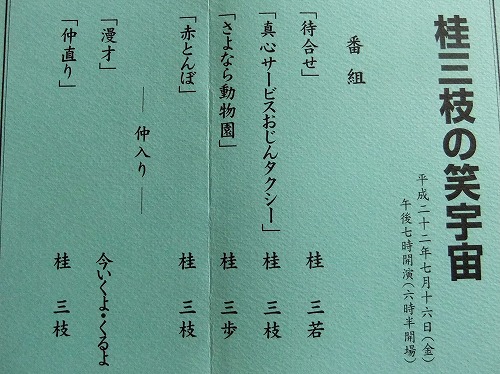 桂三枝の笑宇宙
平成二十二年七月十六日（金）
午後七時開演（六時半開場）
番組
「待合せ」 桂 三若
「真心サービスおじんタクシー」 桂 三枝
「さよなら動物園」 桂 三歩
「赤とんぼ」 桂 三枝
── 仲入り ──
「漫才」 今いくよ・くるよ
「仲直り」 桂 三枝